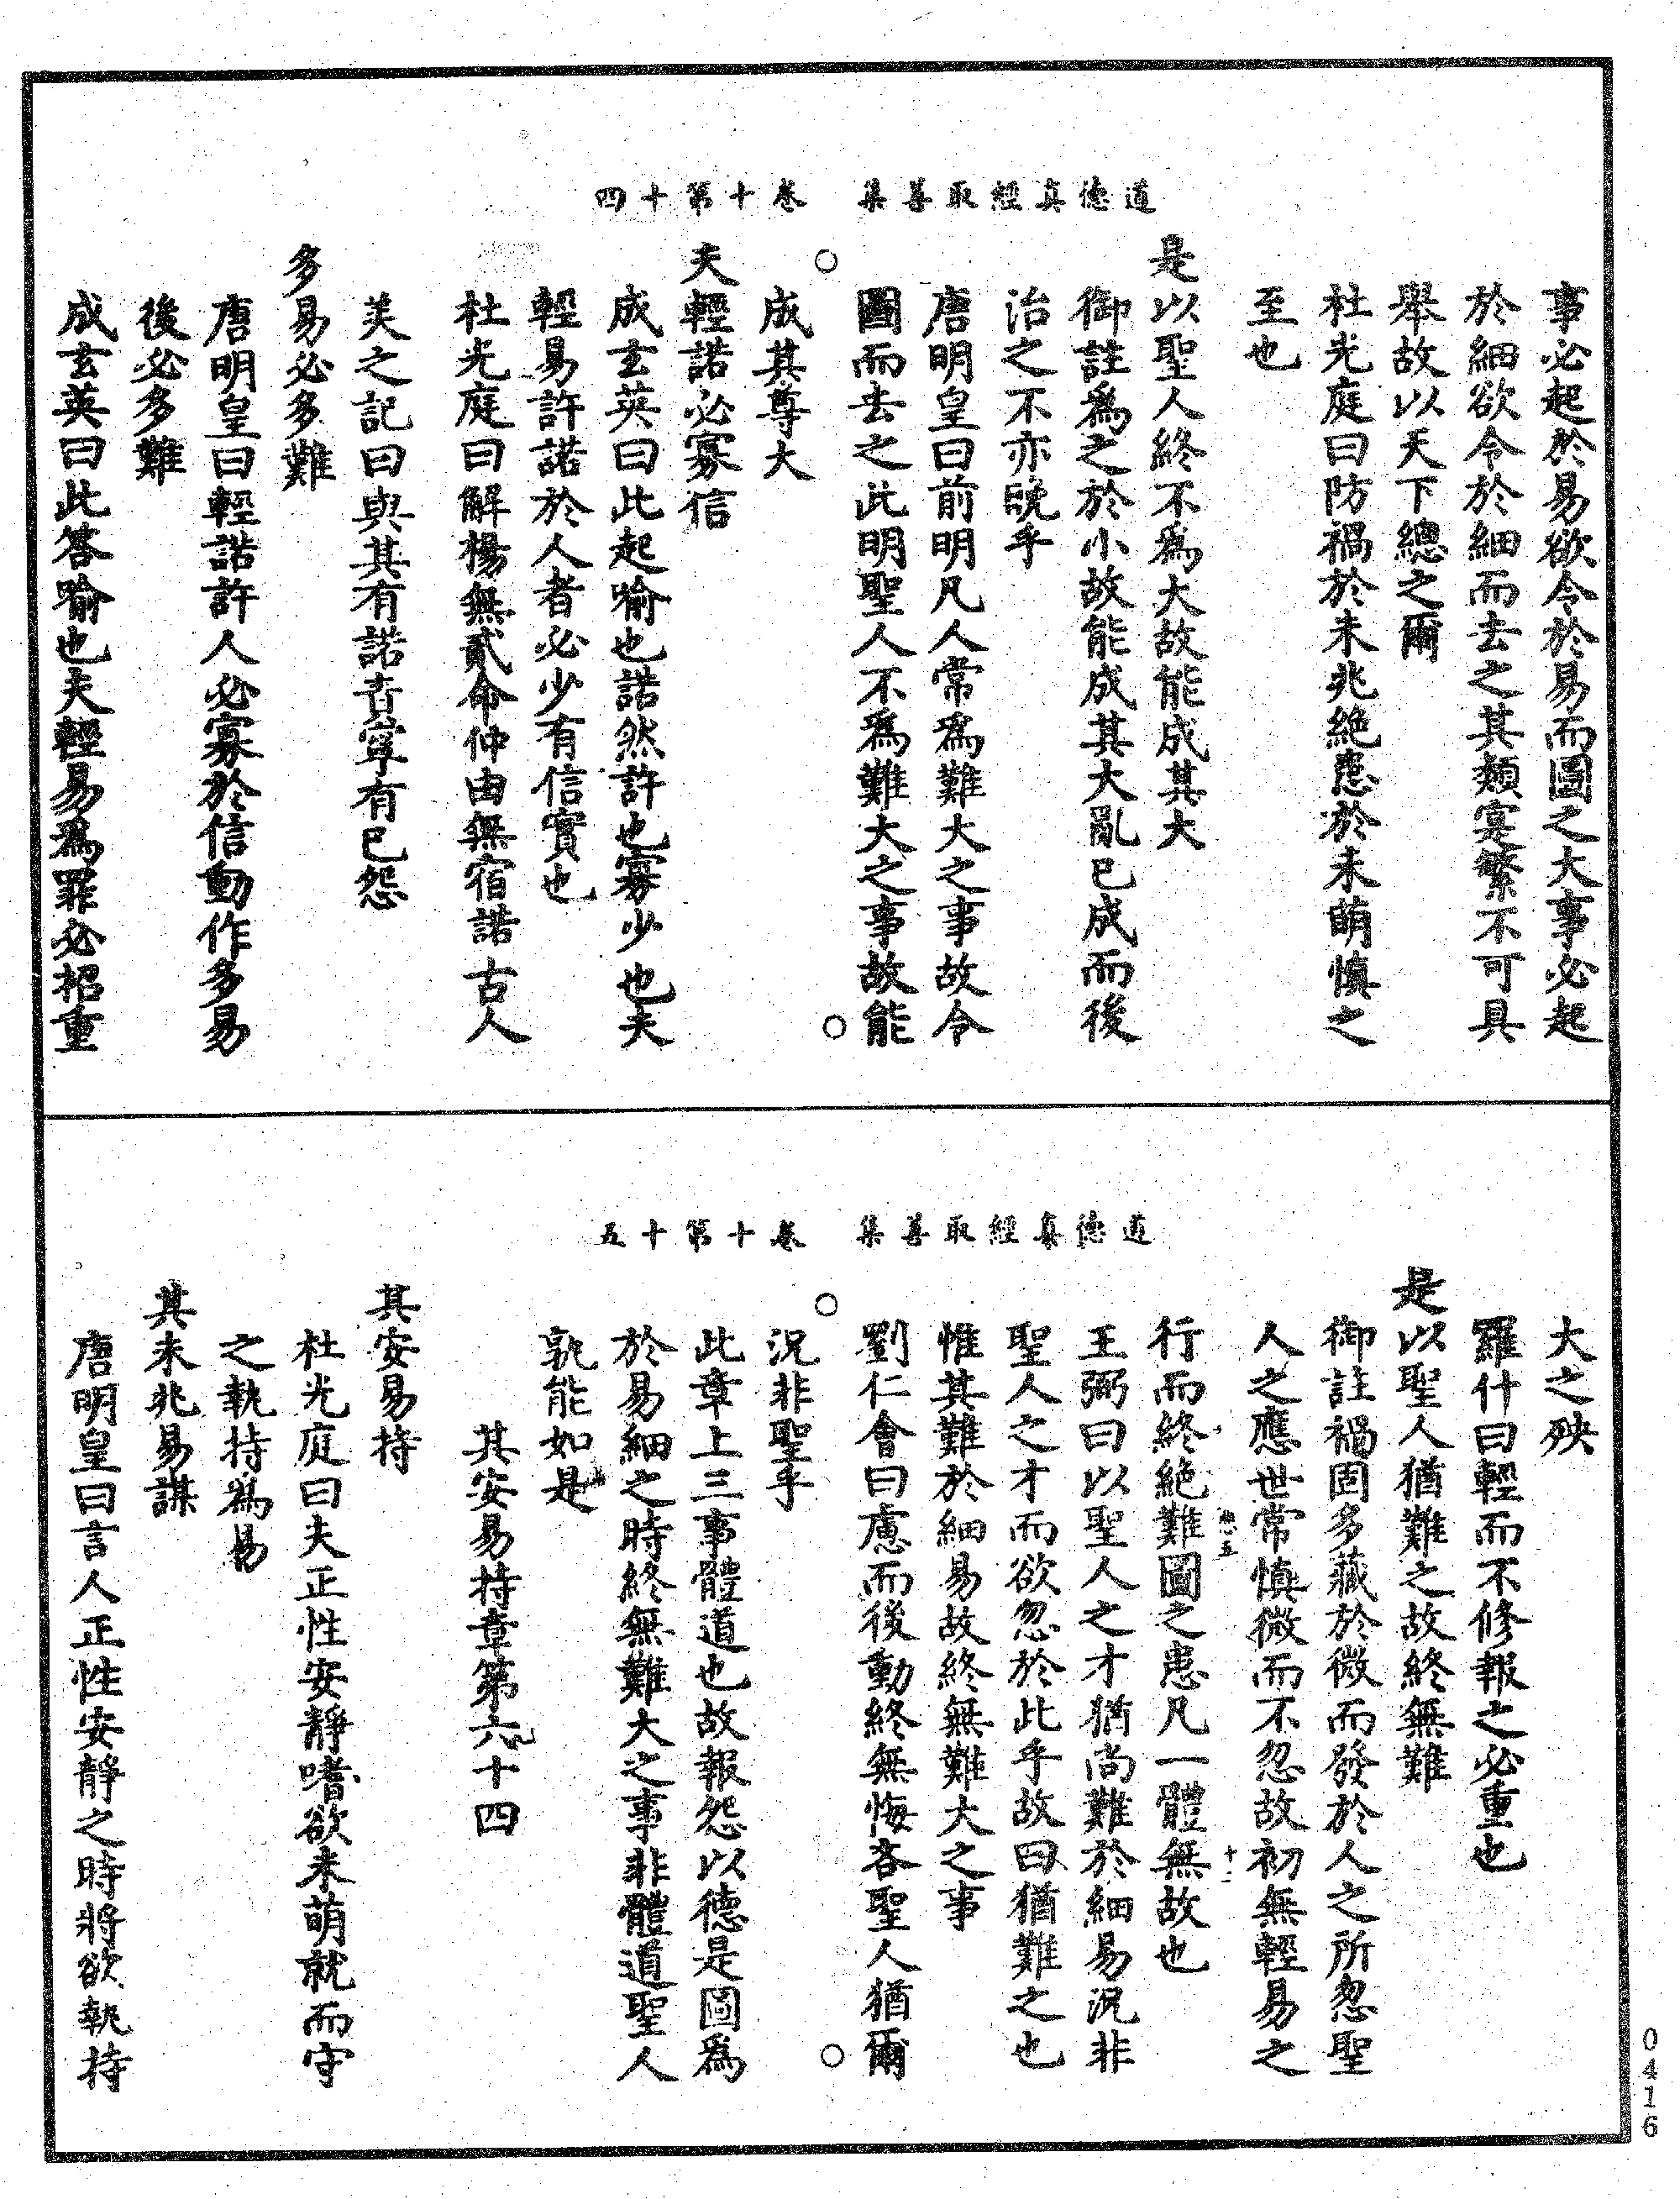 道德真經取善集　卷十第十四
事必起於易欲令於易而圖之大事必起
於細欲令於細而去之其類寔繁不可具
舉故以天下總之爾
杜光庭曰防禍於未兆絕患於未萌慎之
至也
是以聖人終不為大故能成其大
御註為之於小故能成其大亂已成而後
治之不亦晚乎
唐明皇曰前明凡人常為難大之事故令
圖而去之此明聖人不為難大之事故能
成其尊大
夫輕諾必寡信
成玄英曰此起喻也諾然許也寡少也夫
輕易許諾於人者必少有信實也
杜光庭曰解楊無貳命仲由無宿諾古人
美之記曰與其有諾責寧有已怨
多易必多難
唐明皇曰輕諾許人必寡於信動作多易
後必多難
成玄英曰此答喻也夫輕易為罪必招重
道德真經取善集　卷十第十五
大之殃
羅什曰輕而不修報之必重也
是以聖人猶難之故終無難
御註禍固多藏於微而發於人之所忽聖
人之應世常慎微而不忽故初無輕易之
行而終絕難圖之患凡一體無故也
王弼曰以聖人之才猶尚難於細易況非
聖人之才而欲忽於此乎故曰猶難之也
惟其難於細易故終無難大之事
劉仁會曰慮而後動終無悔吝聖人猶爾
況非聖乎
此章上三事體道也故報怨以德是圖為
於易細之時終無難大之事非體道聖人
孰能如是
其安易持章第六十四
其安易持
杜光庭曰夫正性安靜嗜欲未萌就而守
之執持為易
其未兆易謀
唐明皇曰言人正性安靜之時將欲執持
0416